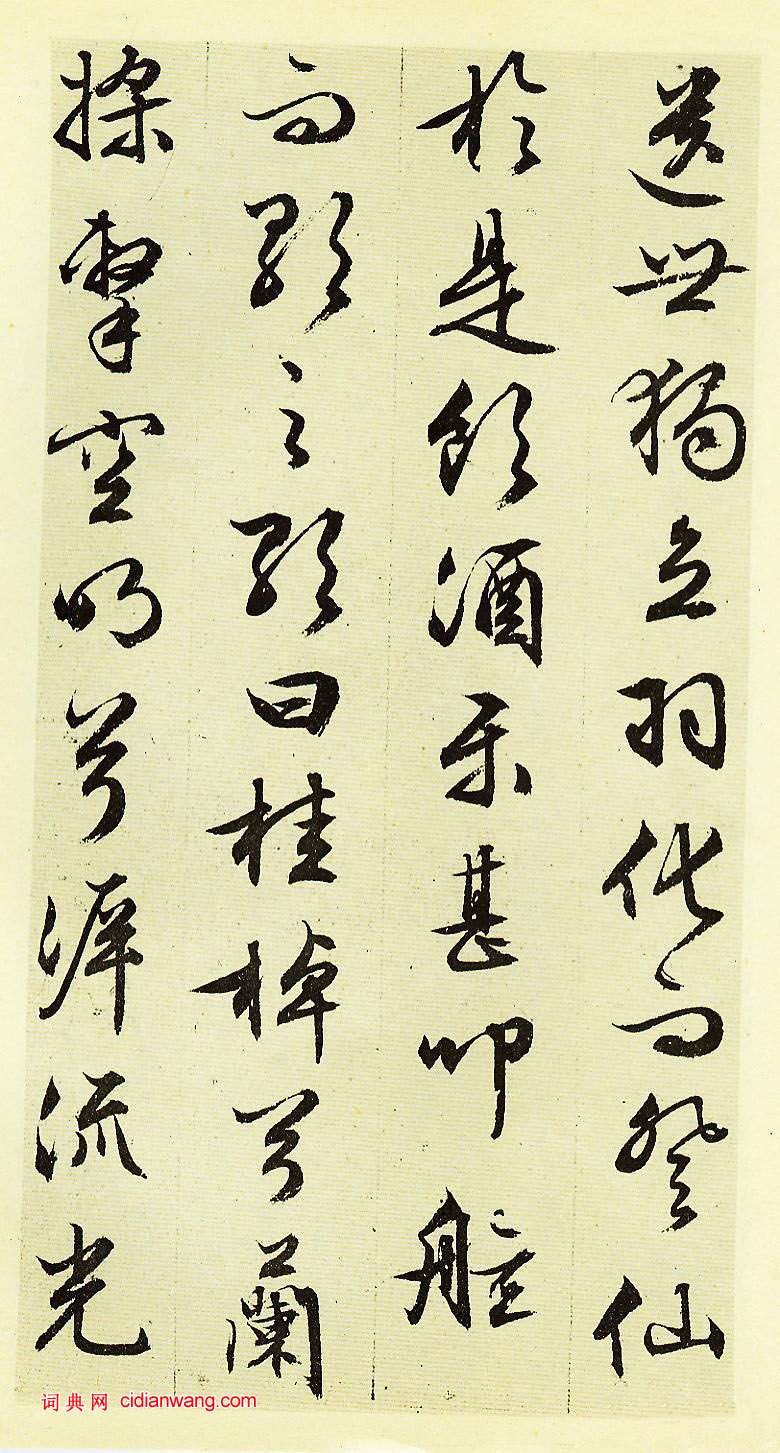 遺世獨立羽化而登仙
於是飲酒樂甚叩舷
而歌之歌曰桂棹兮蘭
槳擊空明兮泝流光
词典网 cidianwang.com